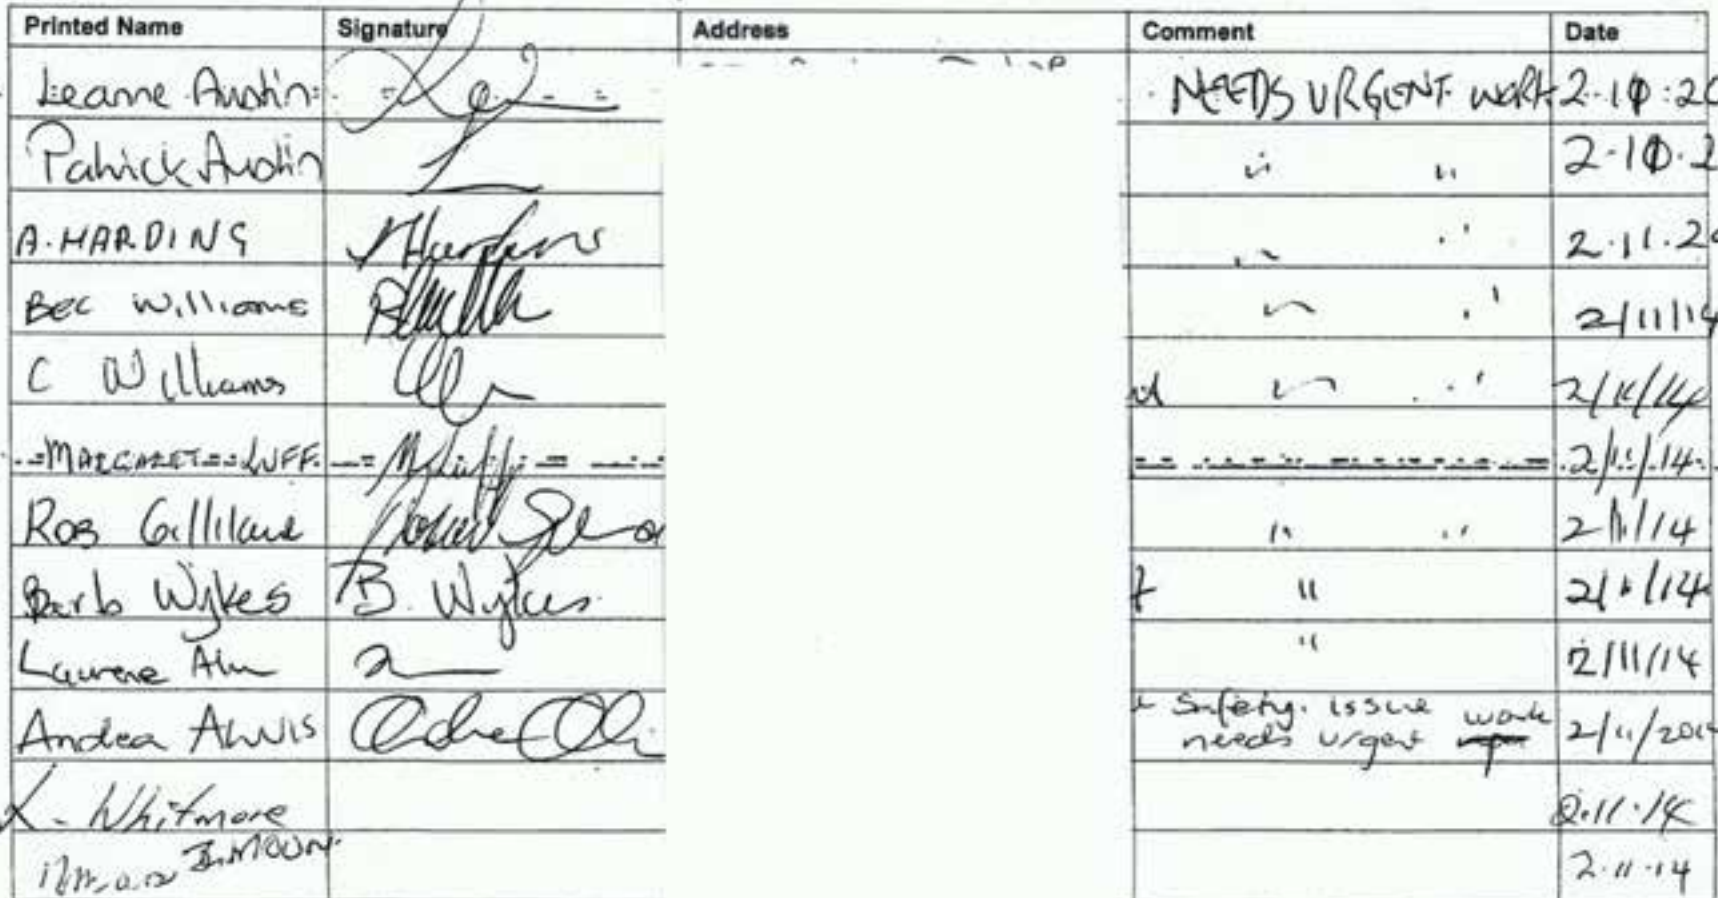 Printed Name Signature Address Comment Date
Leanne Austin NEEDS URGENT WORK 2.10.20
Patrick Austin " " 2.10.2
A. HARDING 2.11.20
Bec Williams 2/11/14
C Williams 2/11/14
MARGARET LUFF 2/11/14
Rob Gilliland " " 2/11/14
Barb Wykes B. Wykes " 2/11/14
Laurene " 2/11/14
Andrea Alwis Safety issue work
needs urgent 2/11/2014
Whitmore 2.11.14
2.11.14